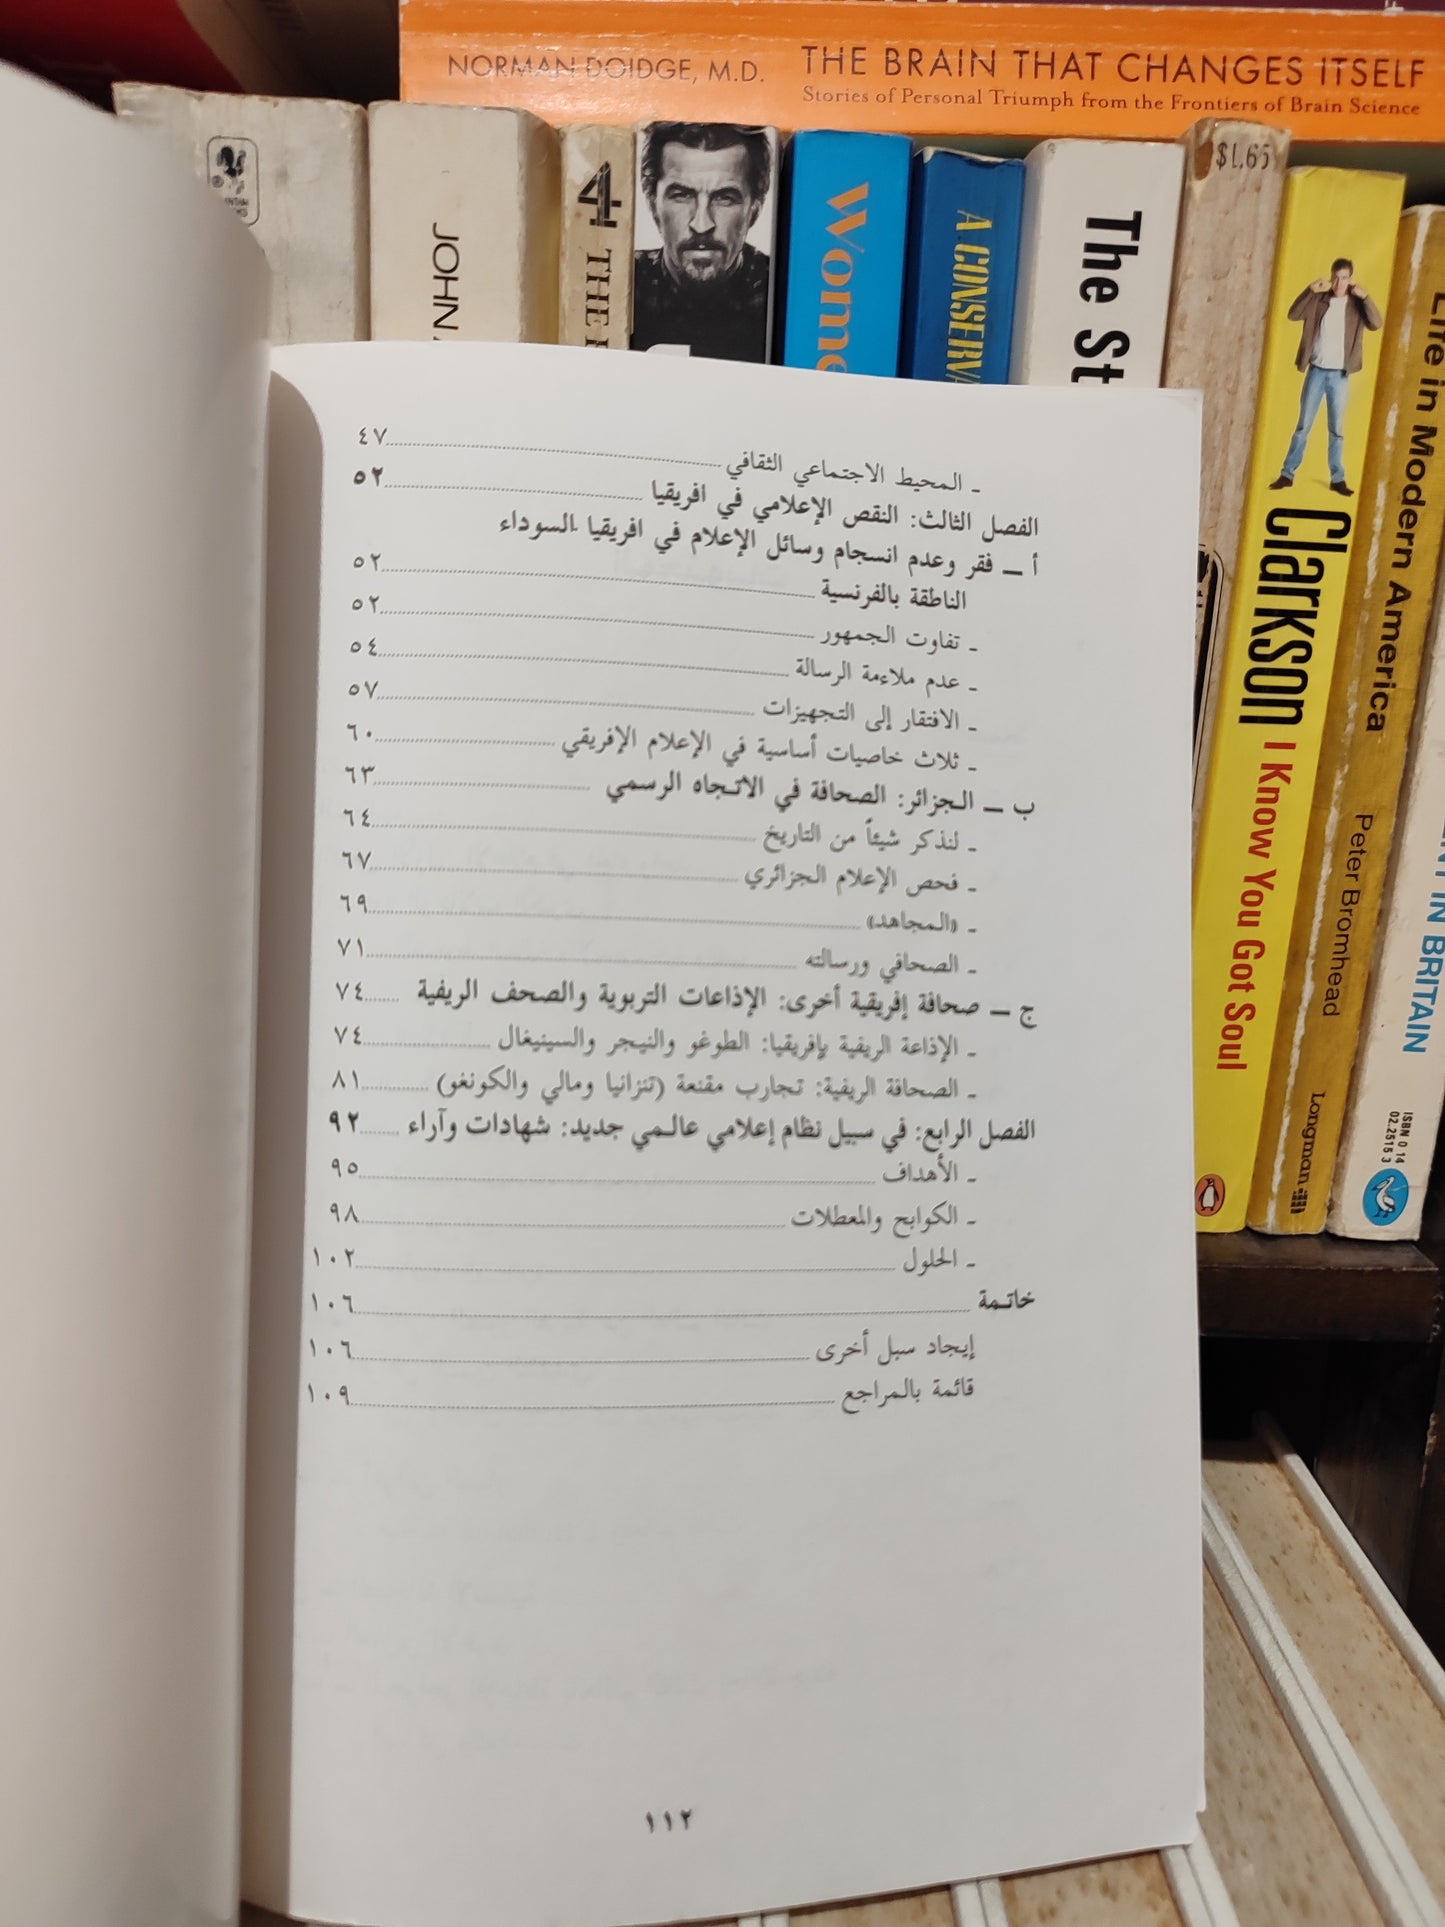 NORMAN DOIDGE, M.D. THE BRAIN THAT CHANGES ITSELF
Stories of Personal Triumph from the Frontiers of Brain Science
JOHN
4 THE
Wome
A CONSERVA
The St
$1.65
Clarkson I Know You Got Soul
Life in Modern America Peter Bromhead Longman
IN BRITAIN
ISBN 0 14
02.2515 3
ـ المحيط الاجتماعي الثقافي ٤٧
الفصل الثالث: النقص الإعلامي في افريقيا ٥٢
أ ــ فقر وعدم انسجام وسائل الإعلام في افريقيا السوداء
الناطقة بالفرنسية ٥٢
ـ تفاوت الجمهور ٥٢
ـ عدم ملاءمة الرسالة ٥٤
ـ الافتقار إلى التجهيزات ٥٧
ـ ثلاث خاصيات أساسية في الإعلام الإفريقي ٦٠
ب ــ الجزائر: الصحافة في الاتجاه الرسمي ٦٣
ـ لنذكر شيئاً من التاريخ ٦٤
ـ فحص الإعلام الجزائري ٦٧
ـ «المجاهد» ٦٩
ـ الصحافي ورسالته ٧١
ج ــ صحافة إفريقية أخرى: الإذاعات التربوية والصحف الريفية ٧٤
ـ الإذاعة الريفية بإفريقيا: الطوغو والنيجر والسينيغال ٧٤
ـ الصحافة الريفية: تجارب مقنعة (تنزانيا ومالي والكونغو) ٨١
الفصل الرابع: في سبيل نظام إعلامي عالمي جديد: شهادات وآراء ٩٢
ـ الأهداف ٩٥
ـ الكوابح والمعطلات ٩٨
ـ الحلول ١٠٢
خاتمة ١٠٦
إيجاد سبل أخرى ١٠٦
قائمة بالمراجع ١٠٩
١١٢